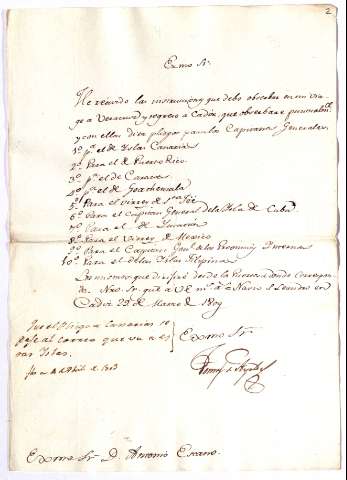 2
Exmo Sr.
He recivido las instrucciones que debo observar en mi via
ge a Veracruz y regreso a Cadiz, que observare puntualm.te
y con ellas diez pliegos para los Capitanes Generales
1º p.a el de Islas Canarias
2º Para el de Puerto Rico
3º p.a el de Caracas
4º p.a el de Goathemala
5º Para el virrey de S.ta Feé
6º Para el Capitan General de la Isla de Cuba
7º Para el de Yucatán
8º Para el Virrey de Mexico
9º Para el Capitan Gen.l de las Provincias Internas
10º Para el de las Islas Filipinas
Los mismos que
Nro. Sr. que a VE m.s a.s Navio S. Leandro en
Cadiz 29 de Marzo de 1809
que el Pliego a Canarias se
pase al correo que va a es
sas Islas.
Exmo Sr.
Exmo Sr. D. Antonio Escaño.